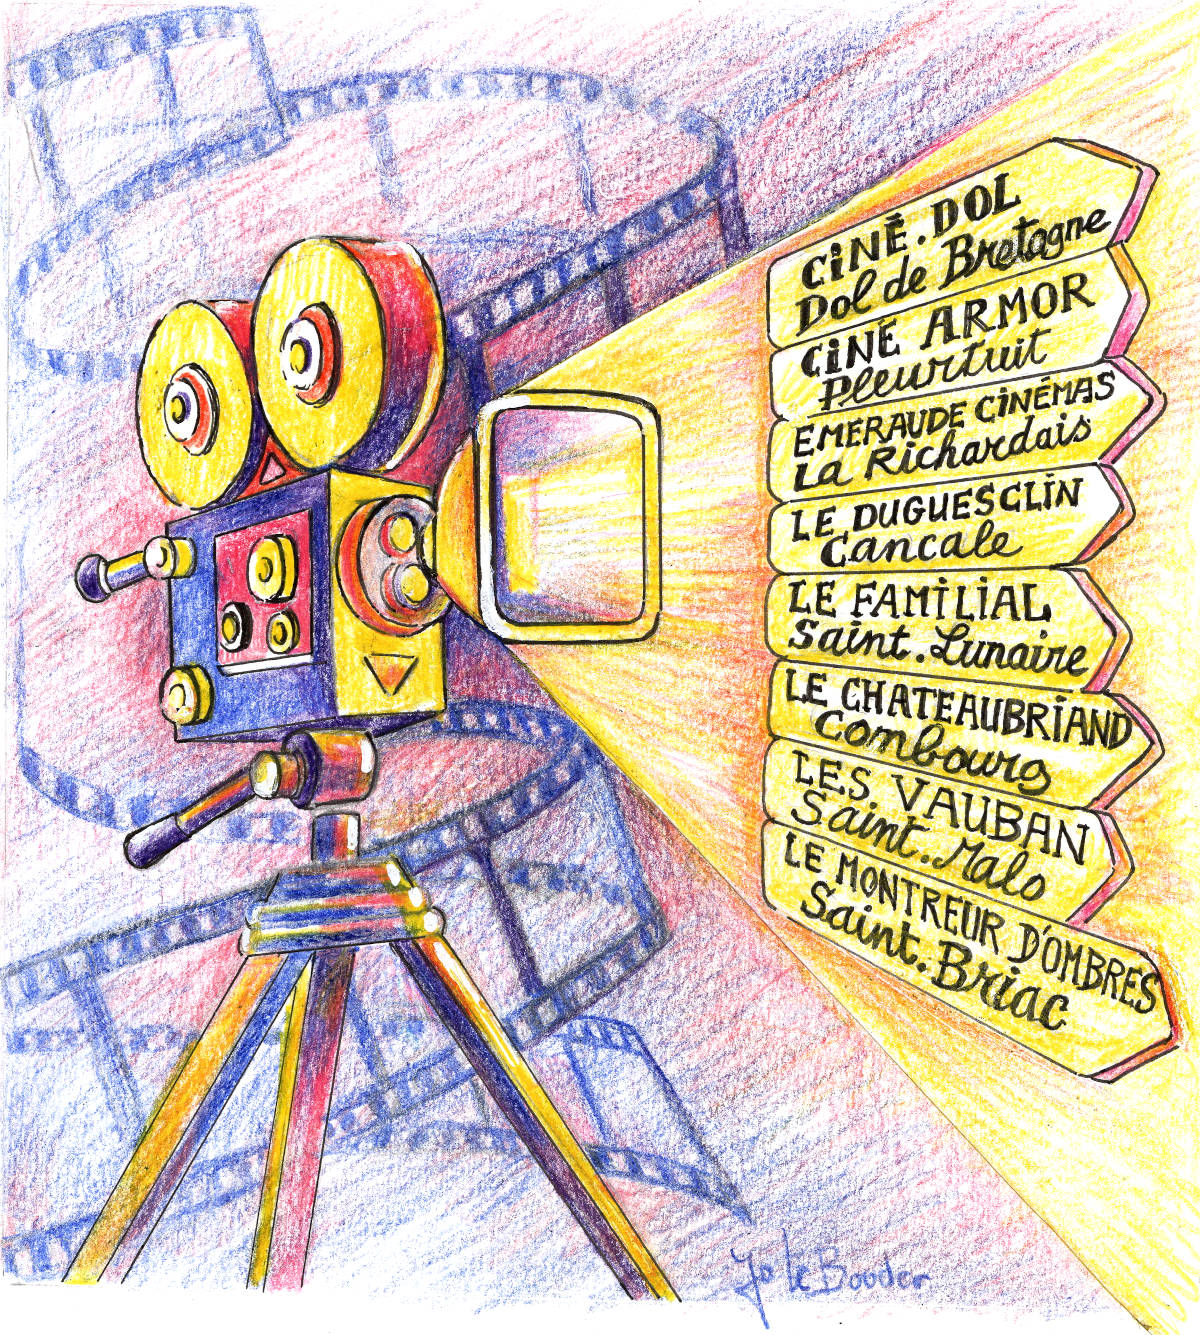 CiNÉ.DOL
Dol de Bretagne
CiNÉ ARMOR
Pleurtuit
EMERAUDE CiNÉMAS
La Richardais
LE DUGUESCLiN
Cancale
LE FAMiLiAL
Saint.Lunaire
LE CHATEAUBRiAND
Combourg
LES VAUBAN
Saint.Malo
LE MONTREUR D'OMBRES
Saint.Briac
Jo Le Bouder